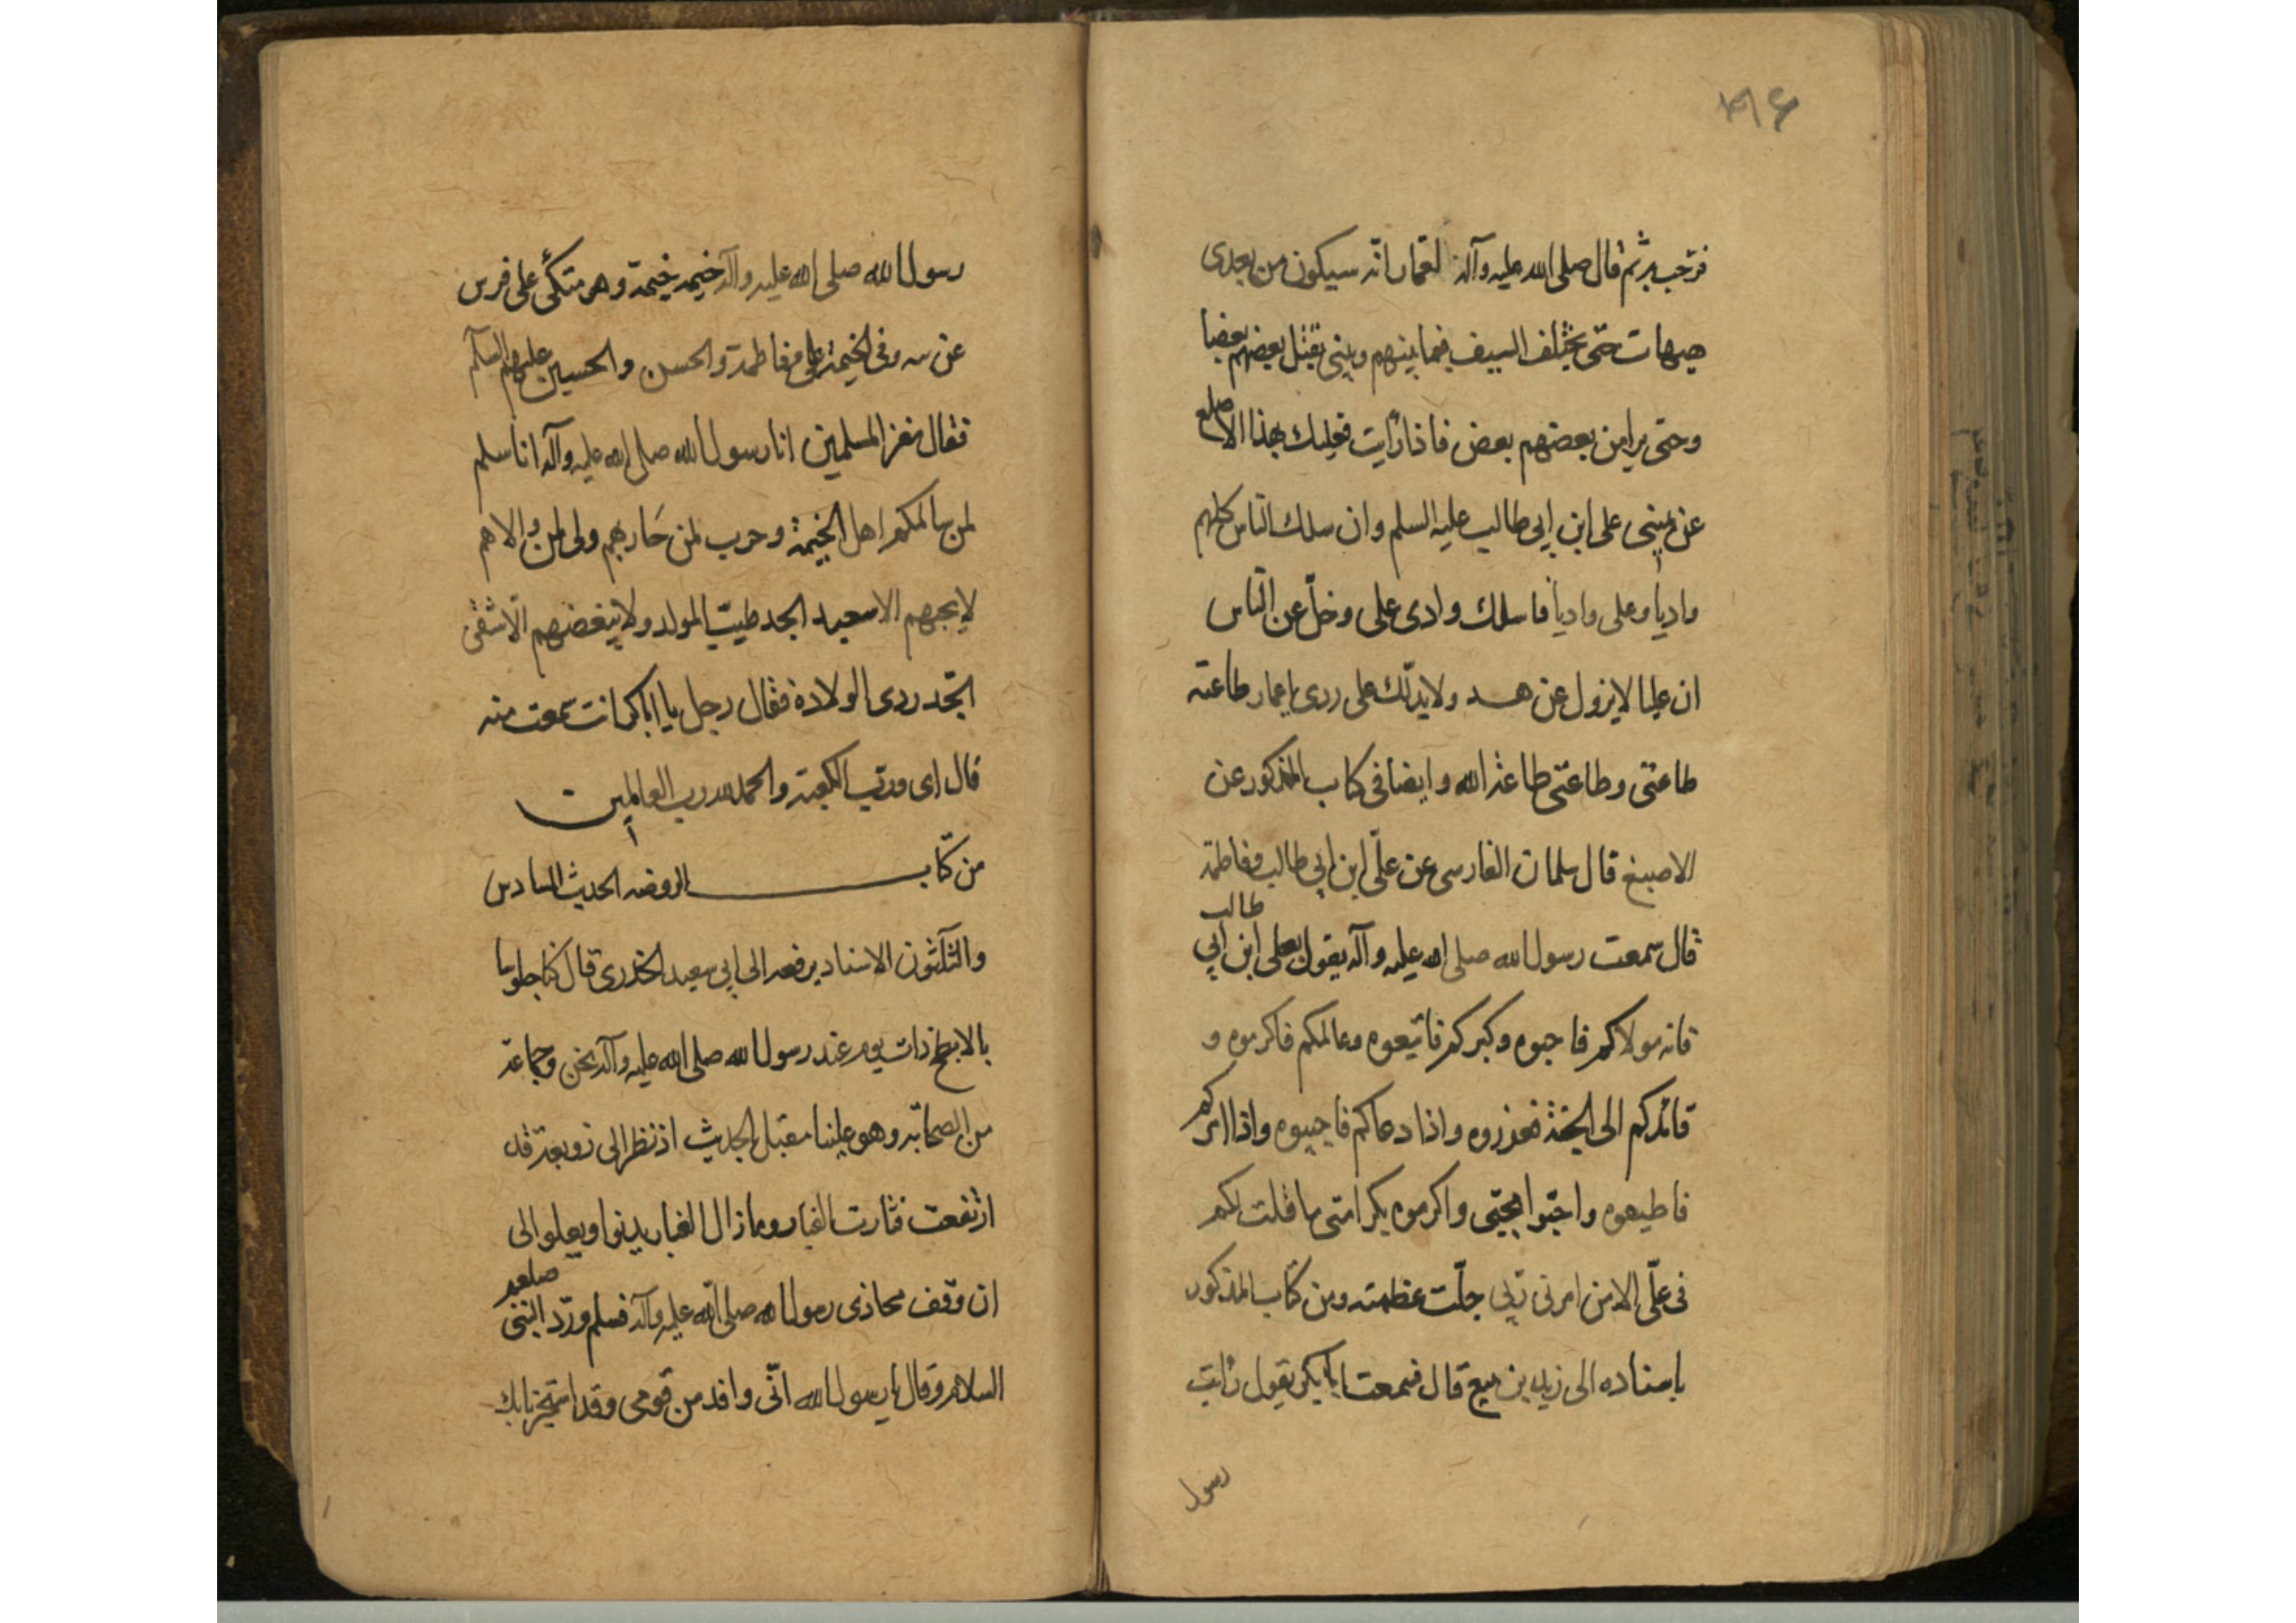 فرّحب به ثم قال صلى الله عليه وآله لعمار انه سيكون من بعدى
هيهات حتى يختلف السيف فيما بينهم وبينى يقتل بعضهم بعضا
وحتى يرامن بعضهم بعض فاذا رأيت فعليك بهذا الاصلع
عن يمينى على ابن ابى طالب عليه السلم وان سلك الناس كلهم
واديا وعلى واديا فاسلك وادى على وخلّ عن الناس
ان عليا لايزول عن هد ولايدلّك على ردى ياعمار طاعته
طاعتى وطاعتى طاعة الله وايضا فى كتاب المذكور عن
الاصبغ قال سلمان الفارسى عن علّى ابن ابى طالب وفاطمة
قال سمعت رسول الله صلى الله عليه وآله يقول بعلى ابن ابى طالب
فانه مولاكم فاحبوه وكبركم فاتبعوه وعالمكم فاكرموه و
قائدكم الى الجنة فعزروه واذا دعاكم فاجيبوه واذا امركم
فاطيعوه واحبّوا بحبّى واكرموه بكرامتى ما قلت لكم
فى علّى الا من امرنى ربّى جلّت عظمته ومن كتاب المذكور
باسناده الى زيد بن يثيع قال سمعت ابابكر يقول رأيت
رسول
رسول الله صلى الله عليه وآله خيم خيمة وهو متكئ على فرس
عن سه وفى الخيمة على وفاطمة والحسن والحسين عليهم السلم
فقال معز المسلمين انا رسول الله صلى الله عليه وآله انا سلم
لمن سالمكم اهل الخيمة وحرب لمن حاربهم ولى لمن والاهم
لايحبهم الا سعيد الجد طيّب المولد ولا يبغضهم الّا شقى
الجّد ردى الولادة فقال رجل يا ابابكر انت سمعت منه
قال اى وربّ الكعبة والحمد لله رب العالمين
من كتاب الروضه الحديث السادس
والثلّثون الاسناد يرفعه الى ابى سعيد الخدرى قال كنا جلوسا
بالابطح ذات يوم عند رسول الله صلى الله عليه وآله نحن وجماعة
من الصحابّه وهو علينا مقبل بالحديث اذ نظر الى زوبعة قد
ارتفعت فثارت الغبار وما زال الغبار يدنوا ويعلوا الى
ان وقف محاذى رسول الله صلى الله عليه وآله فسلم وردّ النبى صلعم
السلام وقال يا رسول الله انّى وافد من قومى وقد استجرنا بك